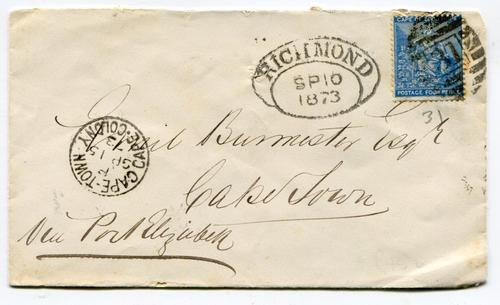 RICHMOND
SP 10
1873
CAPE OF
POSTAGE FOUR PENCE
3)
Burmester Esqr
Cape Town
Via Port Elizabeth
CAPE-TOWN
CAPE-COLONY
SP 15
73